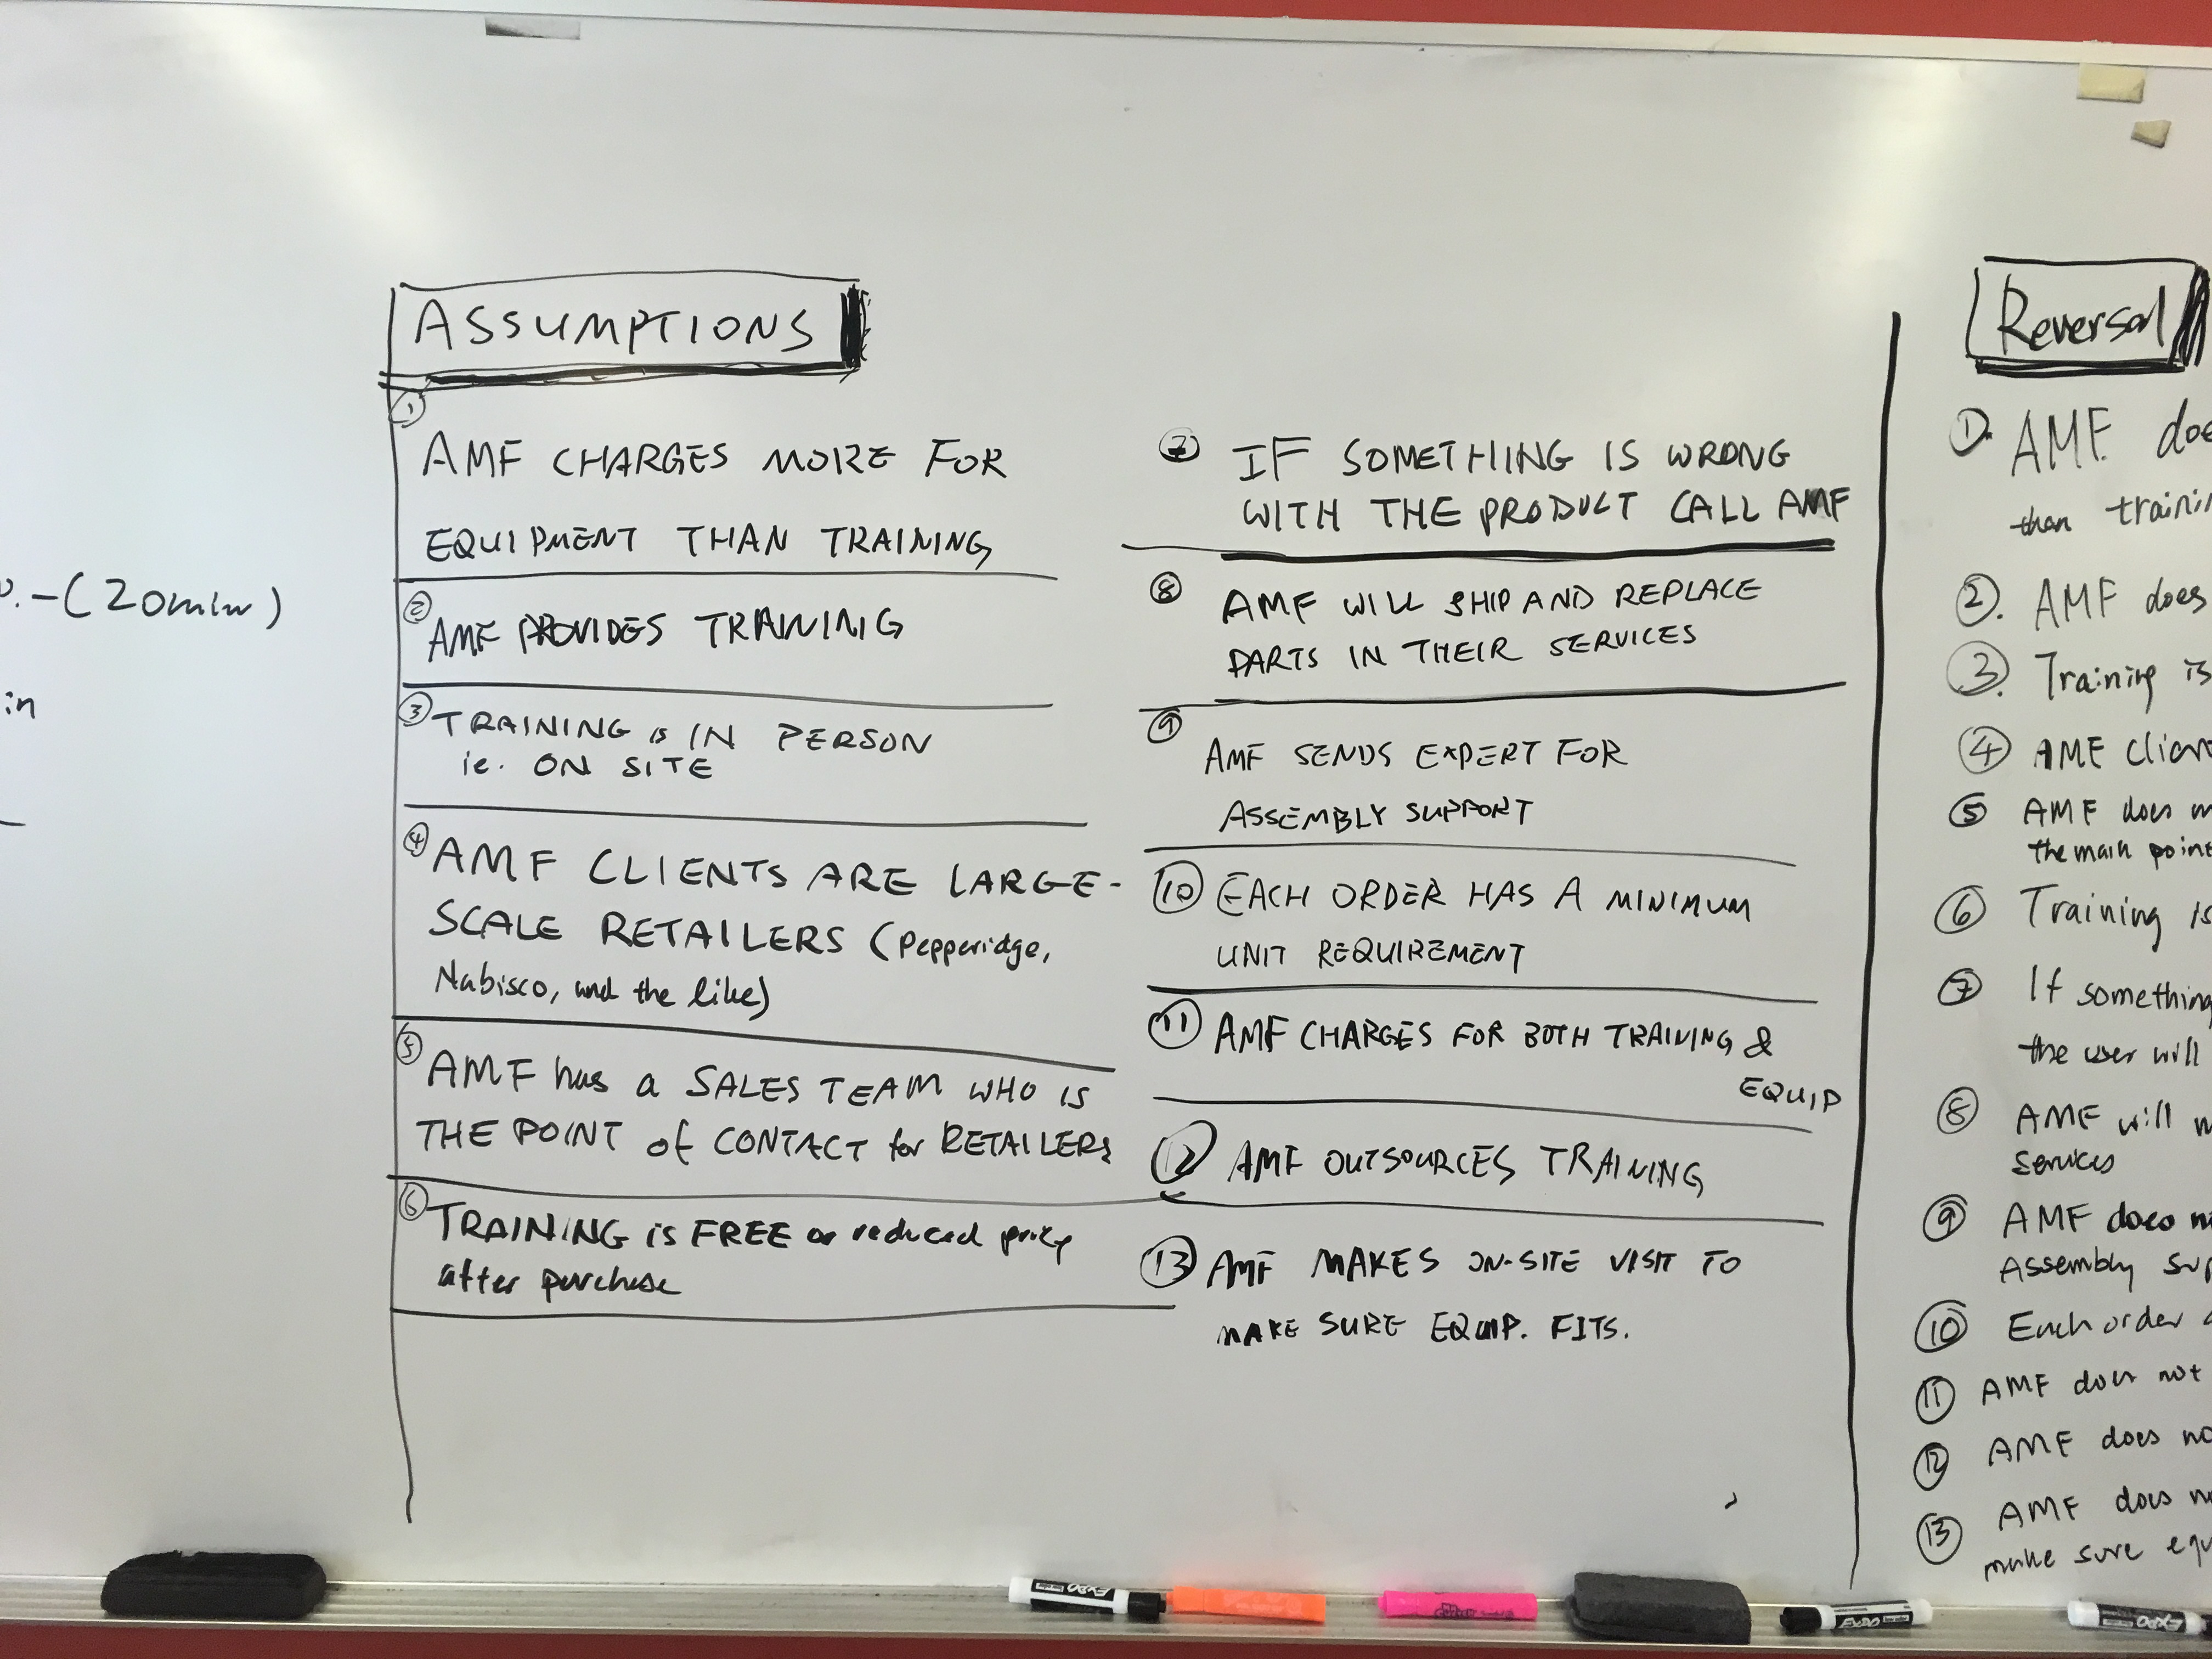 -(20min)
in
ASSUMPTIONS
1
AMF CHARGES MORE FOR
EQUIPMENT THAN TRAINING
2
AMF PROVIDES TRAINING
3 TRAINING is IN PERSON
ie. ON SITE
4 AMF CLIENTS ARE LARGE-
SCALE RETAILERS (Pepperidge,
Nabisco, and the like)
5 AMF has a SALES TEAM WHO IS
THE POINT of CONTACT for RETAILERS
6 TRAINING is FREE or reduced price
after purchase
7 IF SOMETHING IS WRONG
WITH THE PRODUCT CALL AMF
8 AMF WILL SHIP AND REPLACE
PARTS IN THEIR SERVICES
9
AMF SENDS EXPERT FOR
ASSEMBLY SUPPORT
10 EACH ORDER HAS A MINIMUM
UNIT REQUIREMENT
11 AMF CHARGES FOR BOTH TRAINING &
EQUIP
12 AMF OUTSOURCES TRAINING
13 AMF MAKES ON-SITE VISIT TO
MAKE SURE EQUIP. FITS.
Reversal
1. AMF doe
than trainin
2. AMF does
3. Training is
4 AMF Clien
5 AMF does n
the main point
6 Training is
7 If something
the user will
8 AMF will n
services
9 AMF does n
Assembly sup
10 Each order
11 AMF does not
12 AMF does no
13 AMF does n
make sure equ
EXPO
EXPO
EXPO